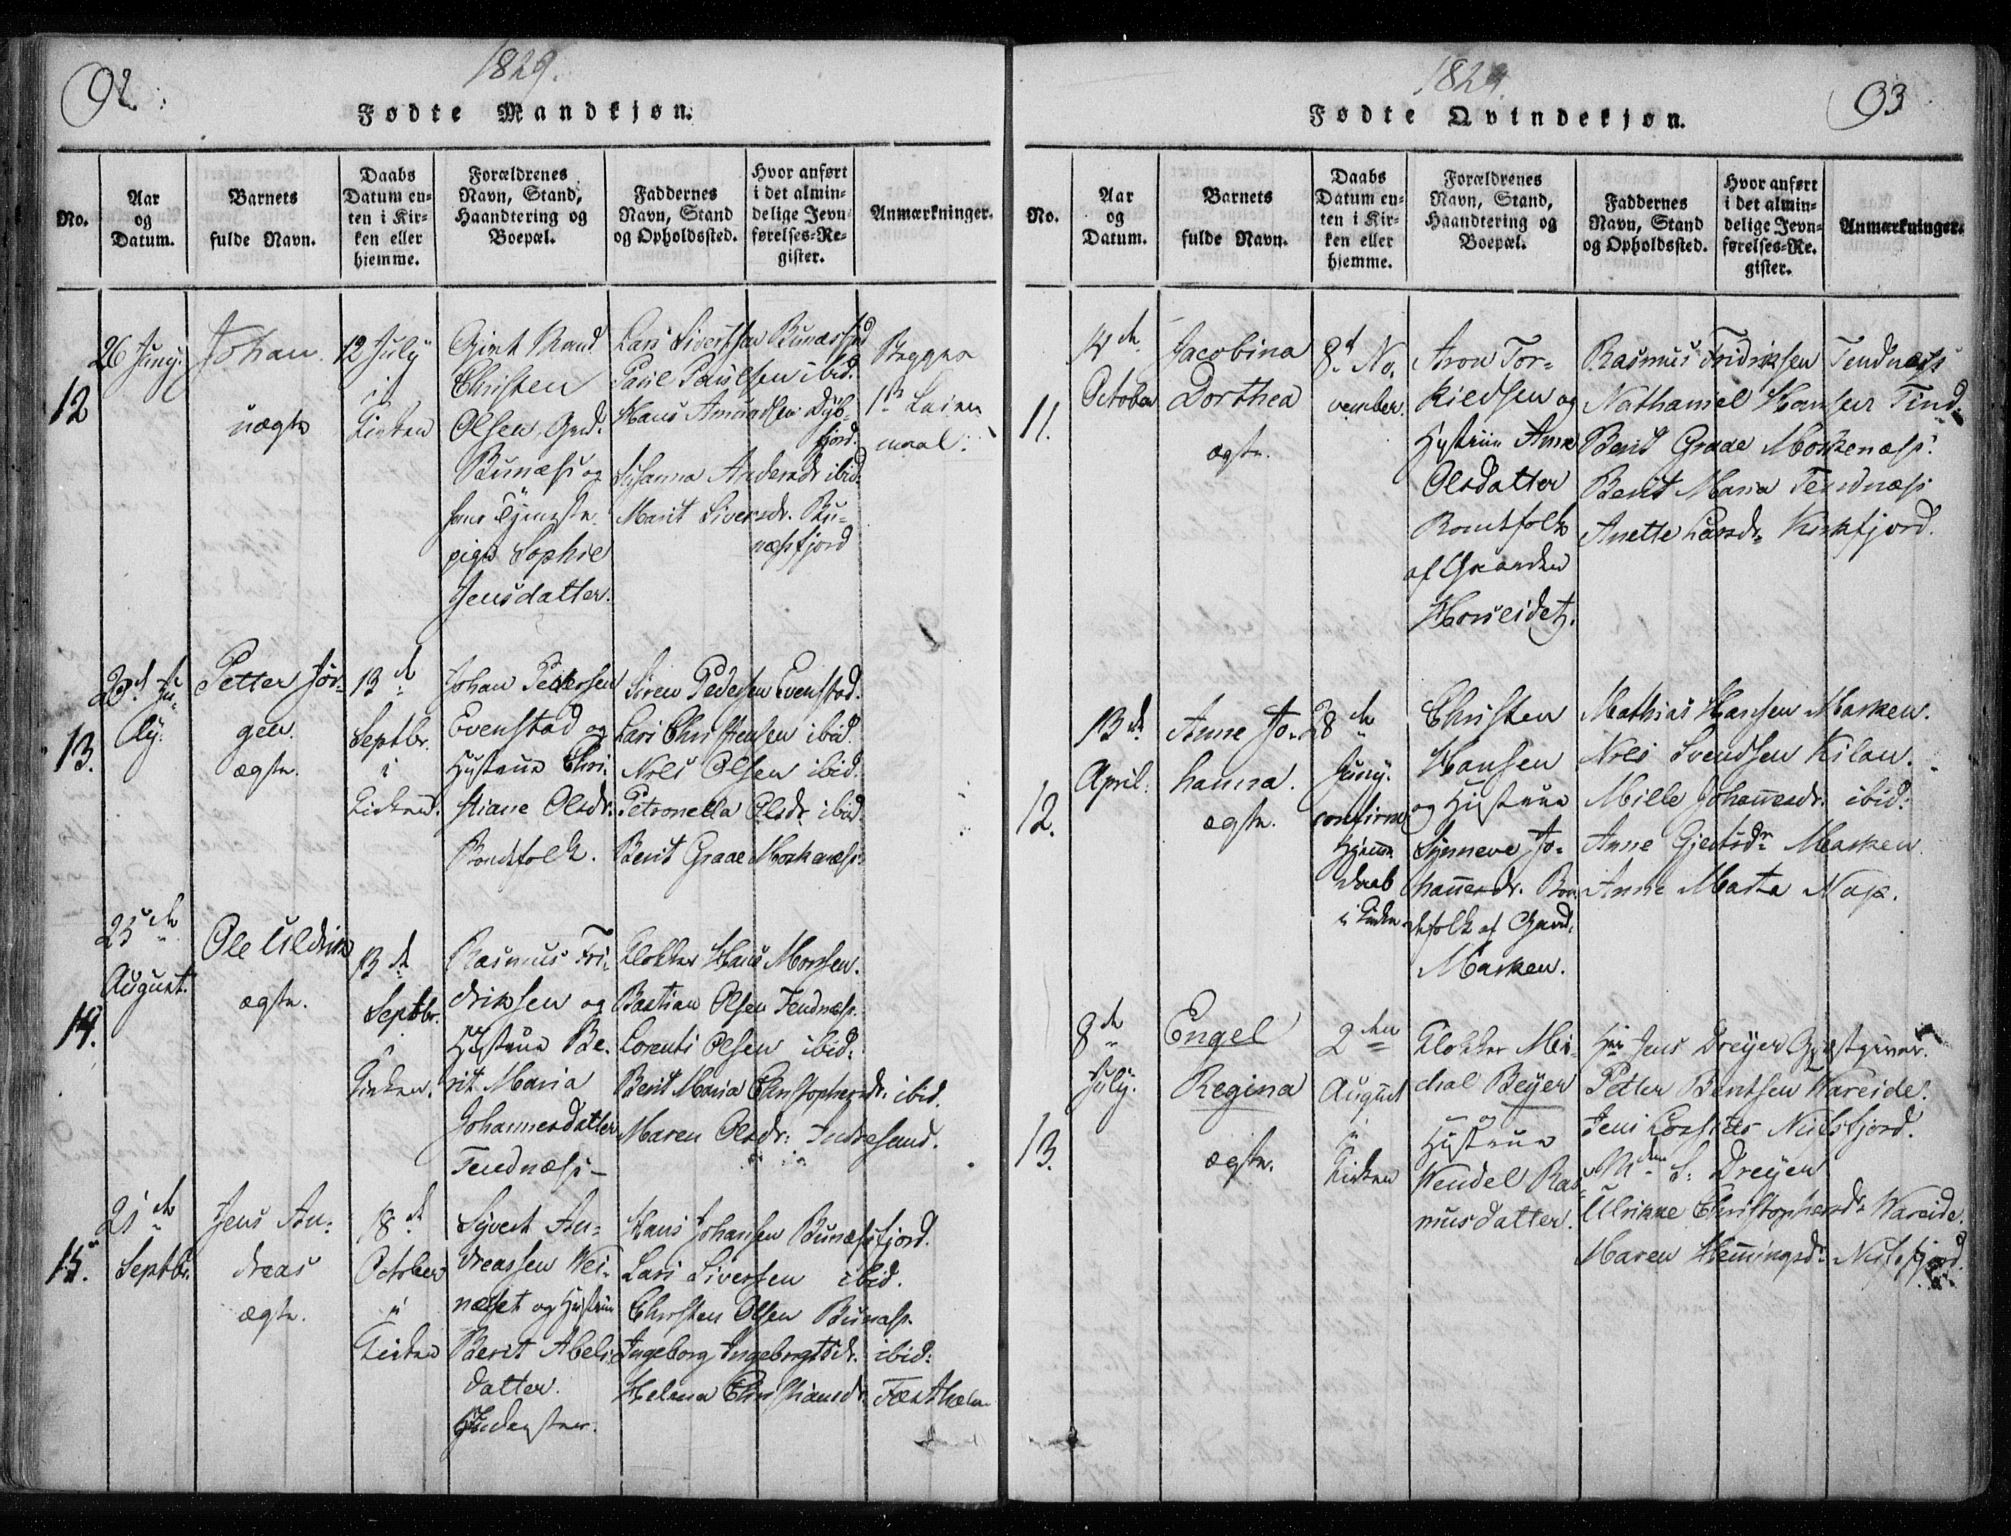 92.
1829.
Fødte Mandkjøn.
No.
Aar
og
Datum.
Barnets
fulde Navn.
Daabs
Datum en-
ten i Kir-
ken eller
hjemme.
Forældrenes
Navn, Stand,
Haandtering og
Boepæl.
Faddernes
Navn, Stand
og Opholdssted.
Hvor anført
i det almin-
delige Jevn-
førelses-Re-
gister.
Anmærkninger.
12
26 Juny
Johan
uægte
12 July
i
Kirken
Givt Mand
Christen
Olsen Gaard.
Bunæss og
hans Tjeneste
pige Sophie
Jensdatter.
Lars Sivertsen Bunæsfjord
Paul Paulsen ibid.
Hans Amundsen Dyb-
fjord.
Susanna Andersdr ibid.
Marit Siversdr. Bu-
næssfjord
Begges
1ste Leier-
maal.
13.
20d Ju-
ly.
Petter Jør-
gen.
ægte.
13d
Septbr.
i
Kirken.
Johan Pedersen
Evenstad og
Hustrue Chri-
stiane Olsdr.
Bondefolk.
Søren Pedersen Evenstad.
Lars Christensen ibid.
Nels Olsen ibid.
Petronella Olsdr. ibid.
Berit Graae Moskenæss.
14.
25de
August.
Ole Uldrik
ægte.
13d
Septbr.
i
Kirken.
Rasmus Fri-
driksen og
Hustrue Be-
rit Maria
Johannesdatter
Tendnæss -
Klokker Hans Monsen.
Bastian Olsen Tendnæss.
Lorents Olsen ibid.
Berit Maria Christophersdr. ibid.
Maren Olsdr. Indresand.
15.
21de
Septbr.
Jens An-
dreas
ægte.
18d
October
i
Kirken
Syvert An-
dreassen Rei-
næset og Hustrue
Berit Abels-
datter.
Huusmester.
Hans Johansen Bunæssfjord.
Lars Siversen ibid.
Christen Olsen Bunæss.
Ingeborg Ingebrigtsdr. ibid.
Helena Christiansdr.
93
1829.
Fødte Qvindekjøn.
No.
Aar
og
Datum.
Barnets
fulde Navn.
Daabs
Datum en-
ten i Kir-
ken eller
hjemme.
Forældrenes
Navn, Stand,
Haandtering og
Boepæl.
Faddernes
Navn, Stand
og Opholdssted.
Hvor anført
i det almin-
delige Jevn-
førelses-Re-
gister.
Anmærkninger.
11.
14de
October
Jacobina
Dorthea
ægte.
8d No-
vember.
Aron Tor-
kildsen og
Hustrue Anne
Olsdatter
Bondefolk
af Gaarden
Horseidet.
Rasmus Fridriksen Tendnæss
Nathanael Hansen Tind.
Berit Graae Moskenæss.
Berit Maria Tendnæss
Anette Larsdr. Kirkfjord.
12.
13d
April.
Anne Jo-
hanna.
ægte.
28de
Juny.
confirm.
Hjemme
daab
i Kirken
Christen
Hansen
og Hustrue
Synneve Jo-
hannesdr. Bon-
defolk af Gaard.
Marken.
Mathias Hansen Marken.
Nels Svendsen Kilan.
Mille Johannesdr. ibid.
Anne Gjertsdr. Marken
Anne Marta Nap.
13.
8de
July.
Engel
Regina
ægte.
2den
August
i
Kirken
Klokker Mi-
chal Beyer
og
Hustrue
Wendel Ras-
musdatter.
Hr. Jens Dreyer Gjæstgiver.
Petter Bentsen Wareide.
Jens Nusfjord.
Mdm S. Dreyer
Ulrikke Christophersdr. Wareide.
Maren Hemmingsdr. Nusfjord.